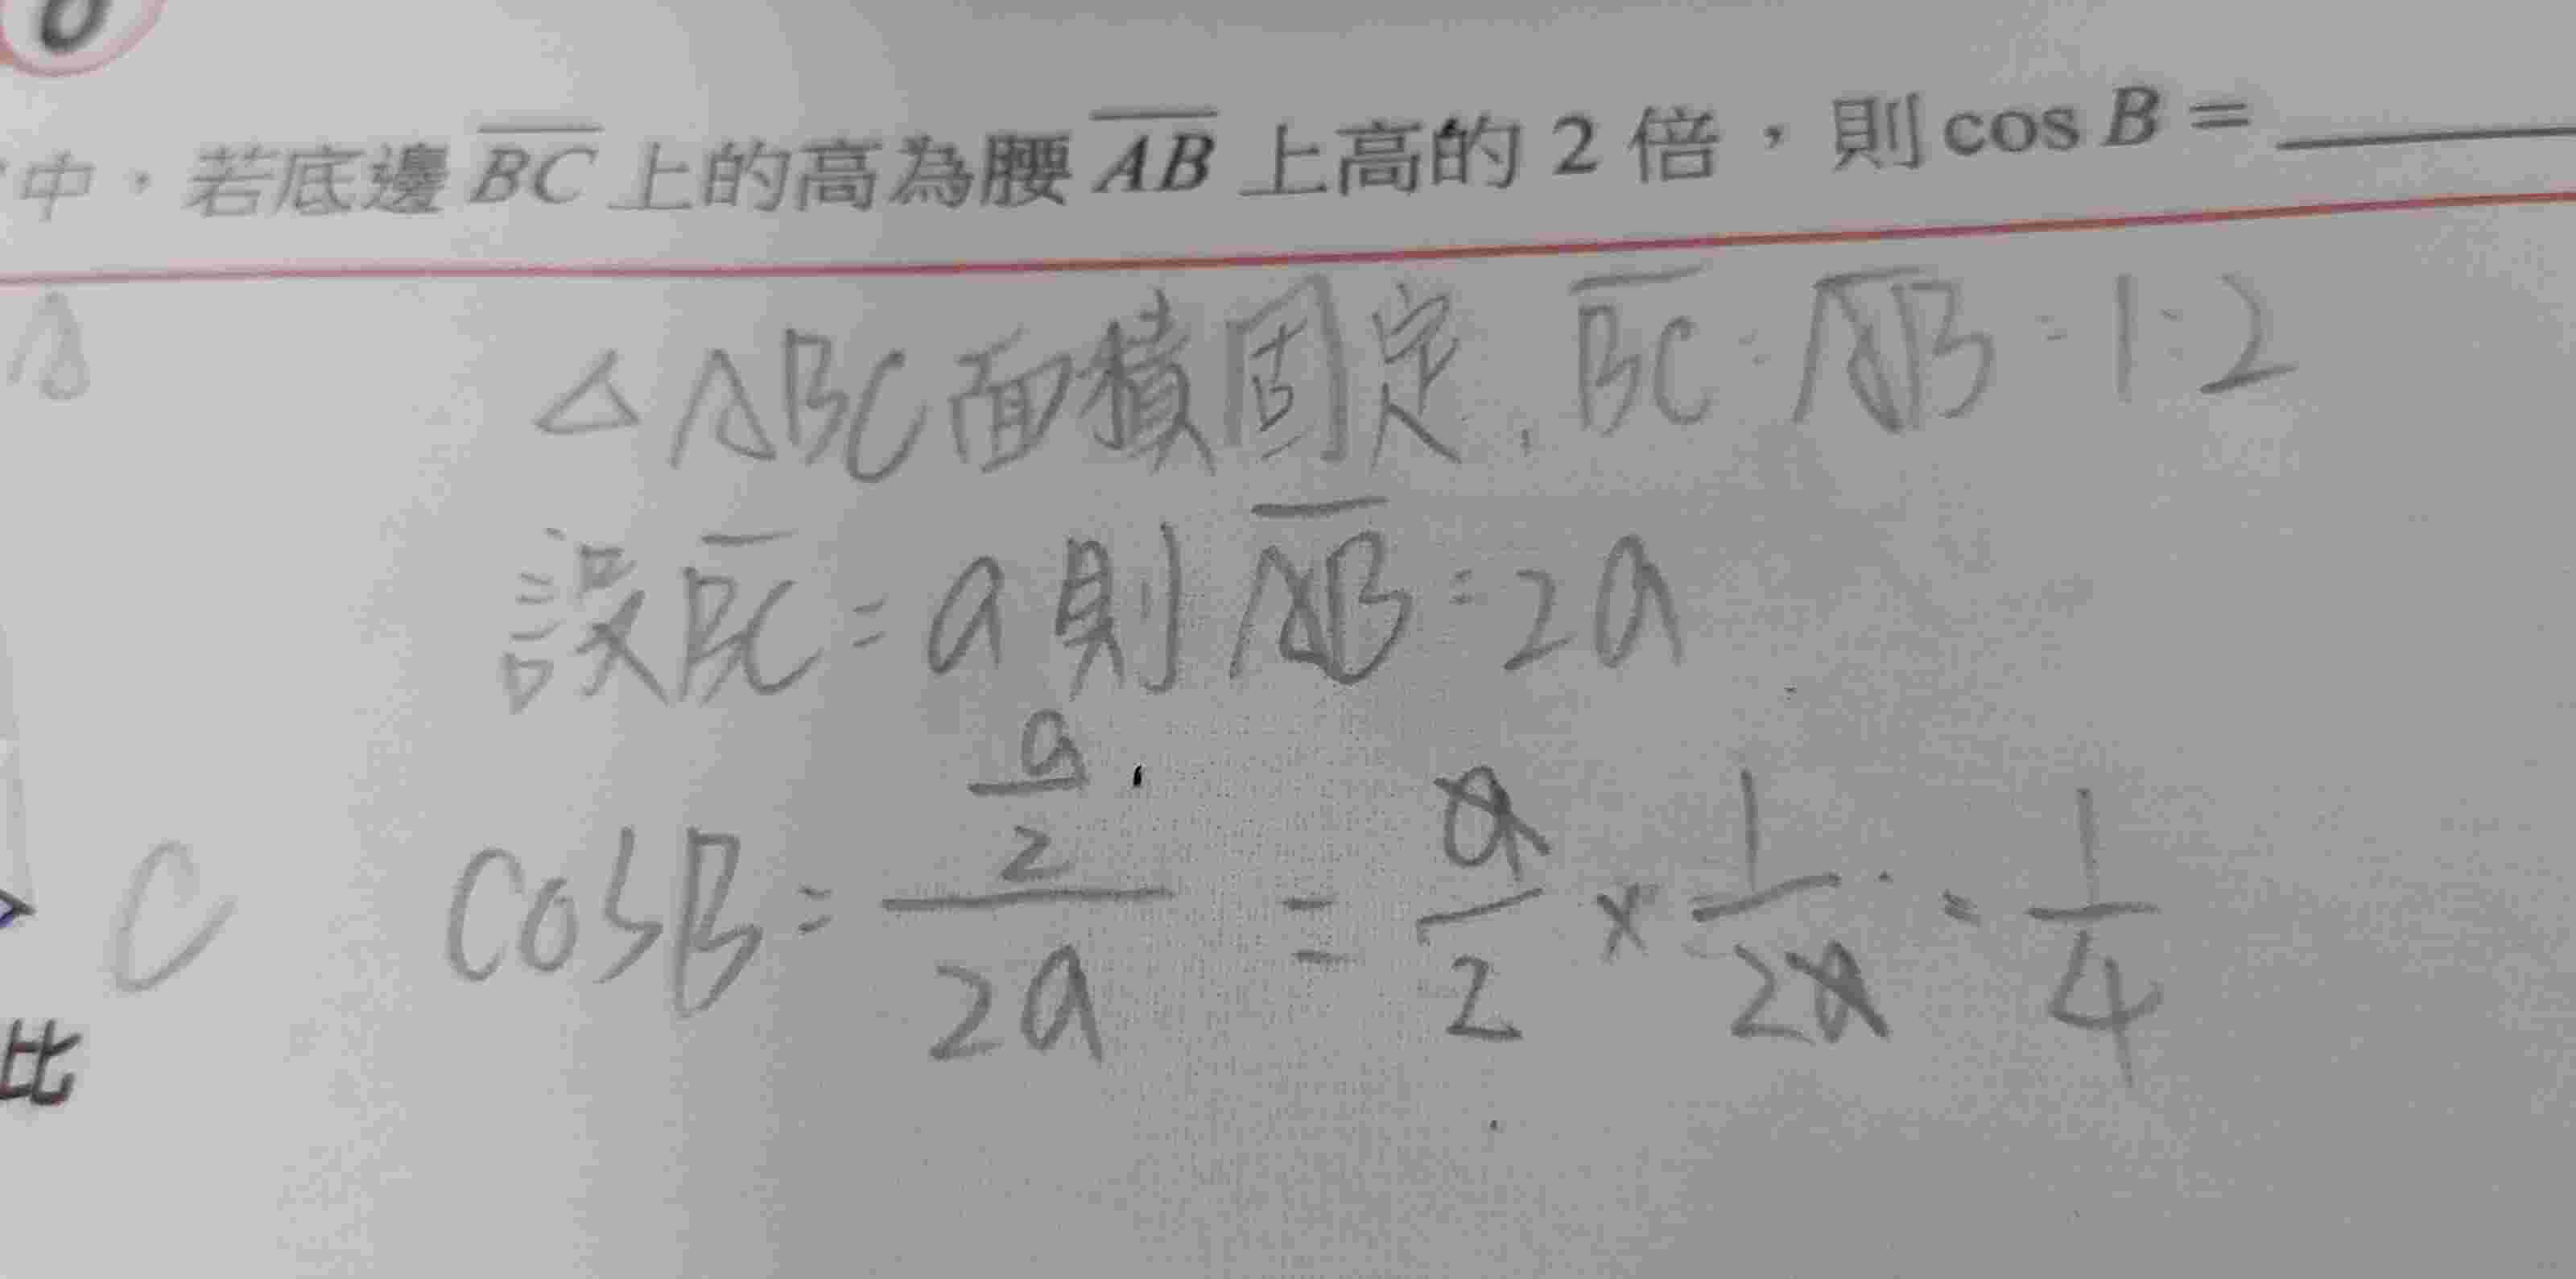 中，若底邊 BC 上的高為腰 AB 上高的 2 倍，則 cos B = ______
△ABC面積固定, BC : AB = 1 : 2
設 BC = a 則 AB = 2a
cosB = (a/2)/(2a) = a/2 × 1/2a = 1/4
C
比